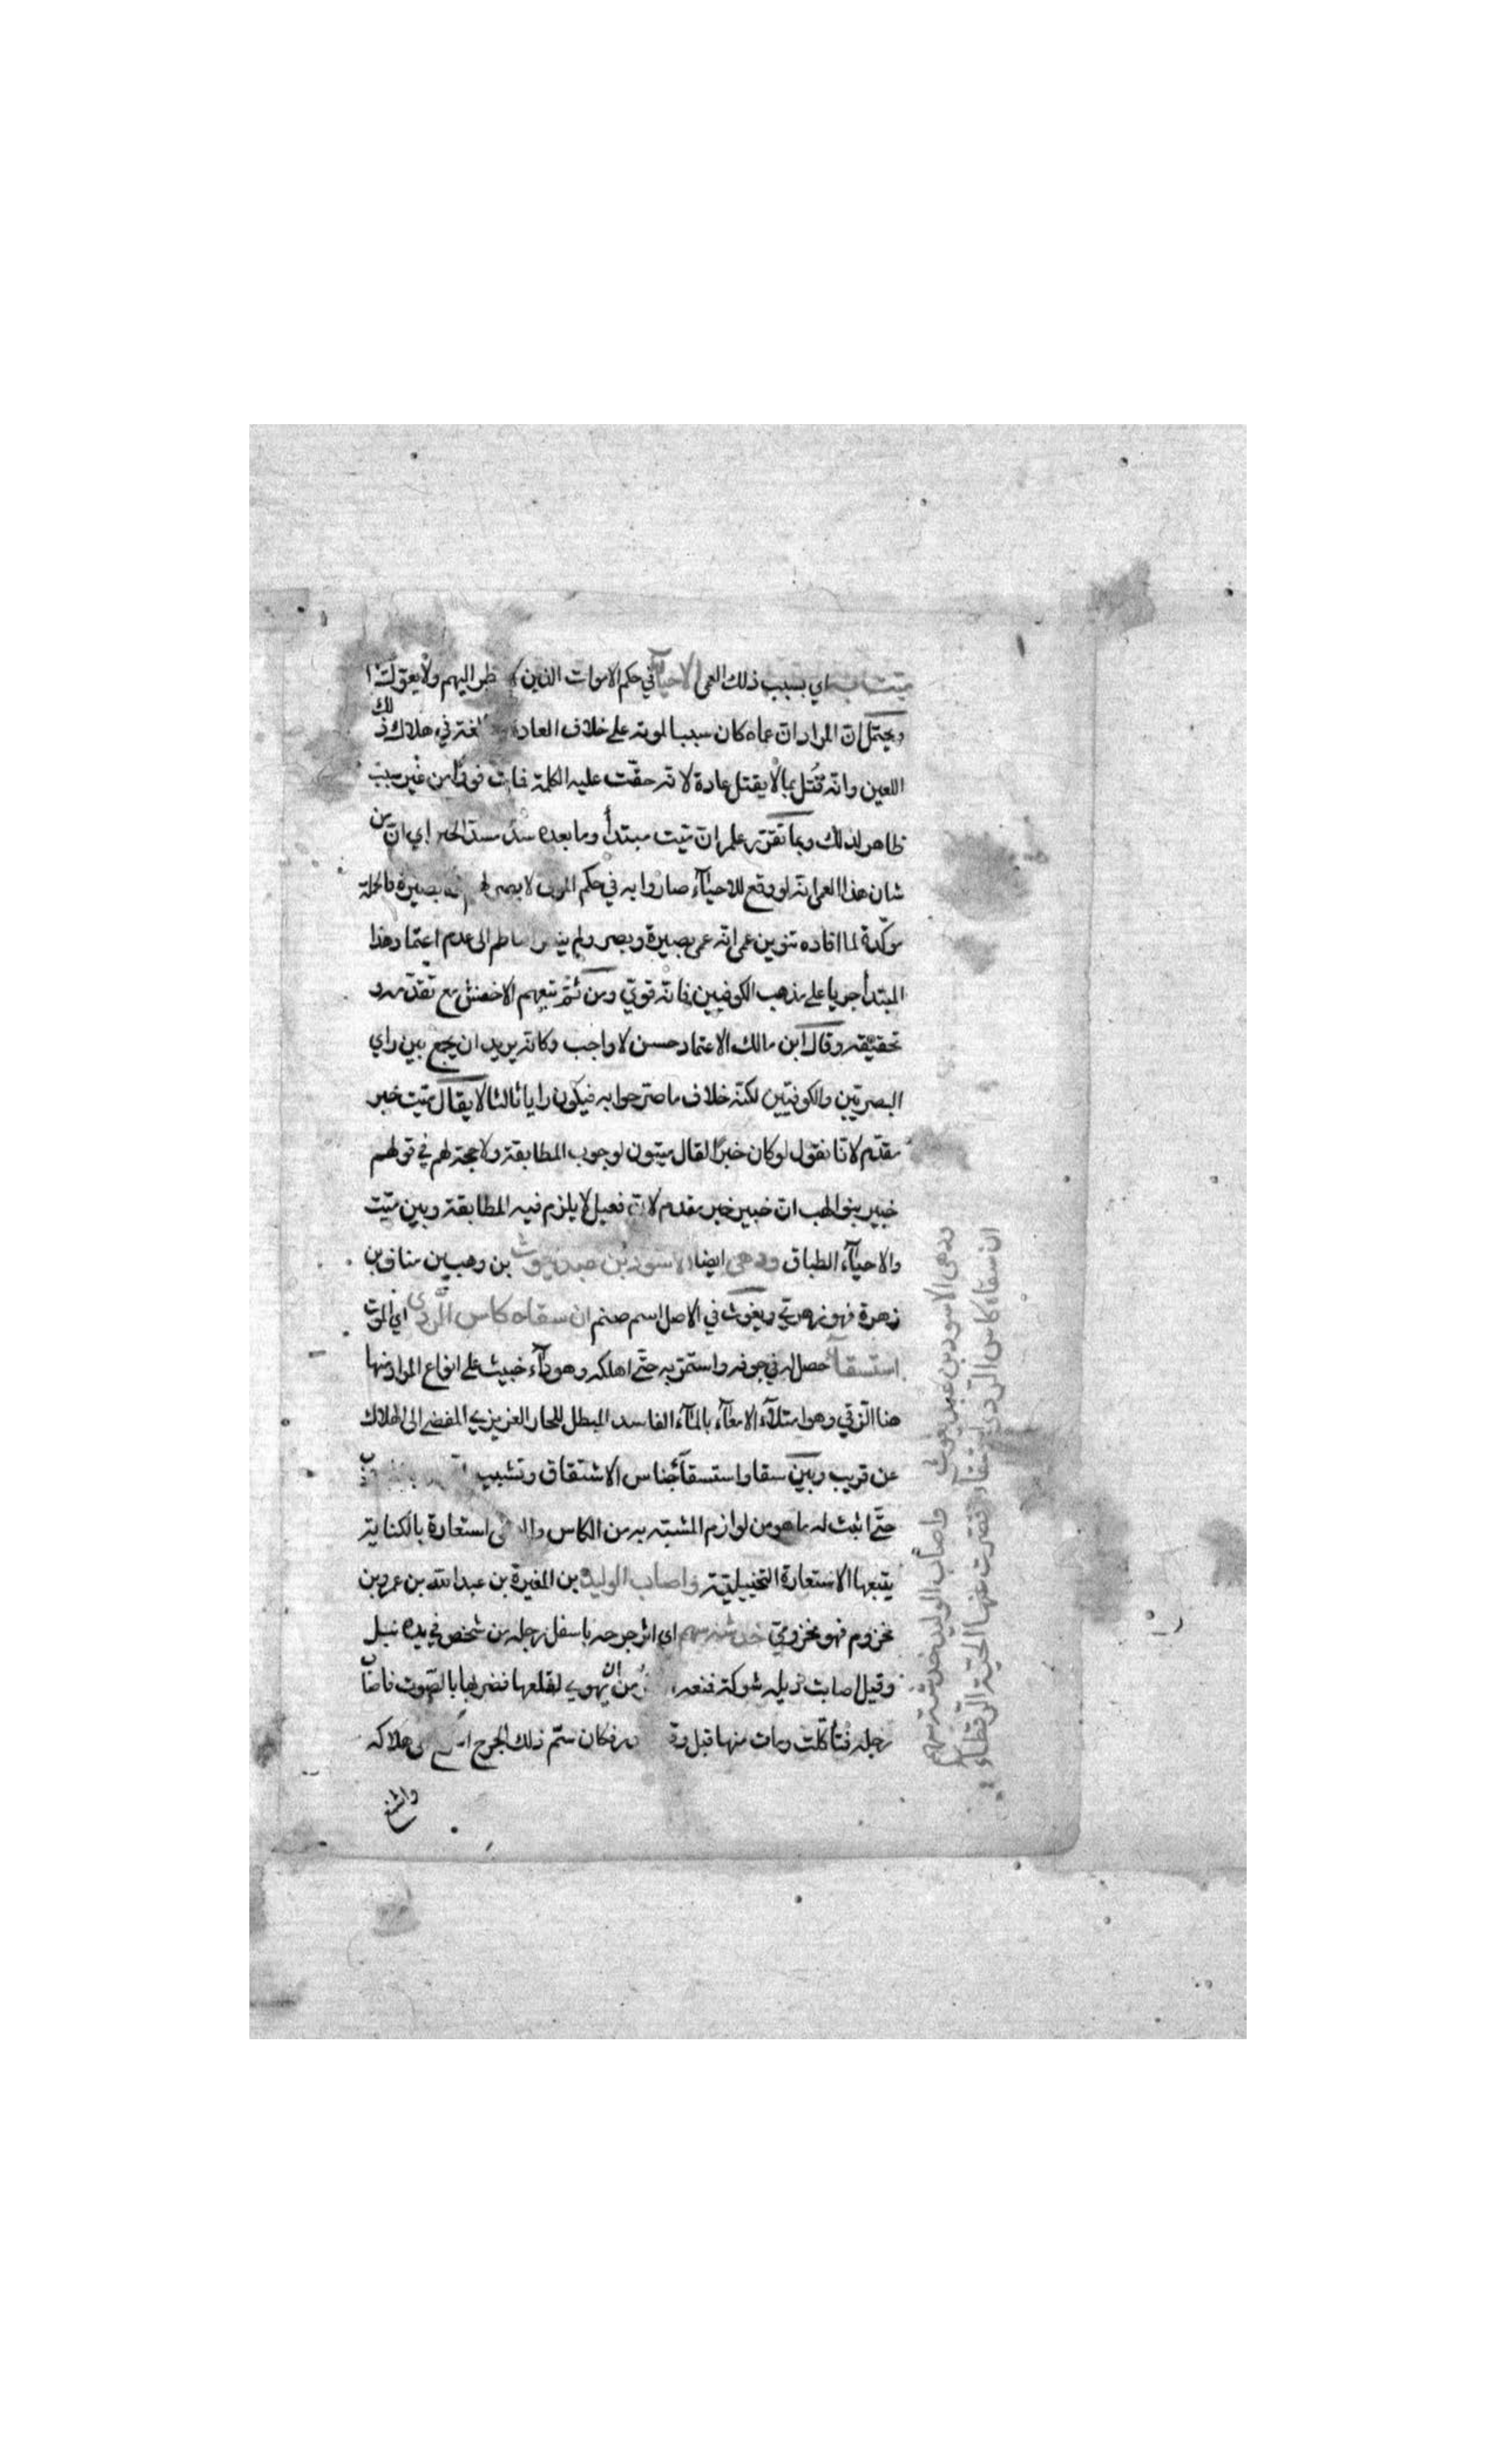 ميت به اي بسبب ذلك العمى الاحياء في حكم الاموات الذين اليهم ولا يعول
ويحتمل ان المراد ان عماه كان سببا لموته على خلاف العادة في هلاك ذلك
اللعين وانه قتل بما لا يقتل عادة لانه حقت عليه الكلمة فمات فورا من غير سبب
ظاهر لذلك وبما تقرر علم ان ميت مبتدأ وما بعده سد مسد الخبر اي ان من
شان هذا العمى انه لو وقع للاحياء صاروا به في حكم الموتى لا بصر لهم ولا بصيرة فالجملة
مؤكدة لما افاده تنوين عمى انه عمى بصيرة وبصر ولم الناظم الى عدم اعتماد هذا
المبتدأ جريا على مذهب الكوفيين فانه قوي ومن ثم تبعهم الاخفش مع تقدمه
تحقيقه وقال ابن مالك الاعتماد حسن لا واجب وكانه يريد ان يجمع بين راي
البصريين والكوفيين لكنه خلاف ما صرحوا به فيكون رايا ثالثا لا يقال ميت خبر
مقدم لانا نقول لو كان خبرا لقال ميتون لوجوب المطابقة ولا حجة لهم في قولهم
خبير بنو لهب ان خبير خبر مقدم لان فعيل لا يلزم فيه المطابقة وبين ميت
والاحياء الطباق ودهى ايضا الاسود بن عبد يغوث بن وهب بن مناف بن
زهرة فهو زهري ويغوث في الاصل اسم صنم ان سقاه كاس الردى اي الموت
استسقاء حصل له في جوفه واستمر به حتى اهلكه وهو داء خبيث على انواع المراد منها
هنا الزقي وهو امتلاء الامعاء بالماء الفاسد المبطل للحار الغريزي المفضي الى الهلاك
عن قريب وبين سقا واستسقاء جناس الاشتقاق وتشبيه
حتى اثبت له ما هو من لوازم المشبه به من الكاس والسقي استعارة بالكناية
يتبعها الاستعارة التخييلية واصاب الوليد بن المغيرة بن عبد الله بن عمر بن
مخزوم فهو مخزومي خدشة سهم اي اثر جرحه باسفل رجله من شخص في يده نبل
وقيل اصابت ذيله شوكة فمنعه من ان يهوي لقلعها فضر بها بالصوت فاصاب
رجله فتأكلت ومات منها قبل فكان سم ذلك الجرح الى هلاكه
ودهى الاسود بن عبد يغوث واصاب الوليد خدشة سهم
ان سقاه كاس الردى استسقاء قصرت عنها الحية الرقطاء